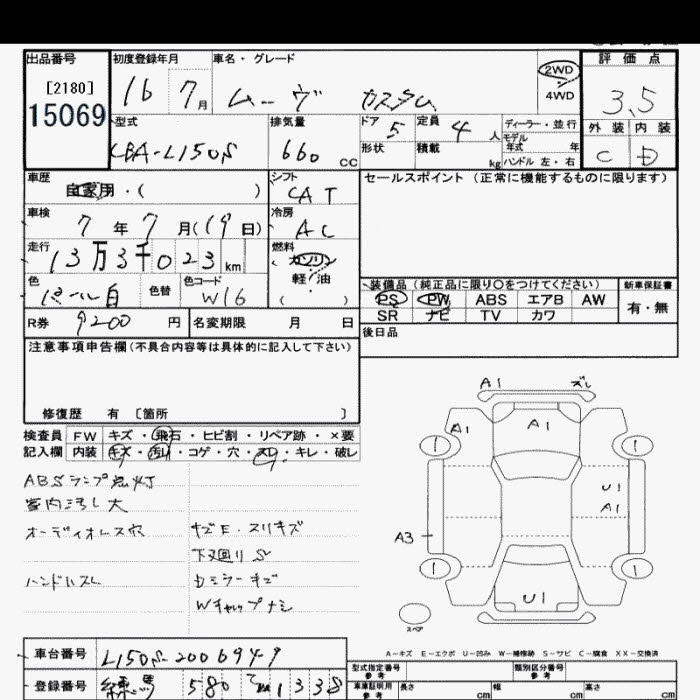 出品番号 初度登録年月 車名・グレード 2WD 評価点
[2180] 16 7月 ムーヴ カスタム 4WD 3.5
15069 型式 排気量 ドア 5 定員 4人 ディーラー・並行 外装 内装
モデル年式 年
CBA-L150S 660 CC 形状 積載 kg ハンドル 左・右 C D
車歴 自家用・( ) シフト CAT セールスポイント (正常に機能するものに限ります)
車検 7年7月(19日) 冷房 AC
走行 13万3千023km 燃料 ガソリン
軽・油
( )
色 パール白 色替 色コード W16 装備品 (純正品に限り〇をつけてください) 新車保証書
PS PW ABS エアB AW 有・無
SR ナビ TV カワ
R券 9200円 名変期限 月 日 後日品
注意事項申告欄(不具合内容等は具体的に記入して下さい)
修復歴 有 〔箇所 〕
検査員 FW キズ・飛石・ヒビ割・リペア跡・×要
記入欄 内装 キズ・汚れ・コゲ・穴・スレ・キレ・破レ
ABSランプ点灯
室内汚レ大
オーディオレス穴 キズE・スリキズ
下廻りS
ハンドルスレ Dミラーキズ
Wキャップナシ
A1 ズレ
A1 A1
1 1
U1
A1
A3
1 1
U1
スペア
A-キズ E-エクボ U-凹み W-補修跡 S-サビ C-腐食 XX-交換済
車台番号 L150S-2006949 型式指定番号 参考 類別区分番号 参考
登録番号 練馬 580 1338 車庫証明用 参考 長さ cm 幅 cm 高さ cm